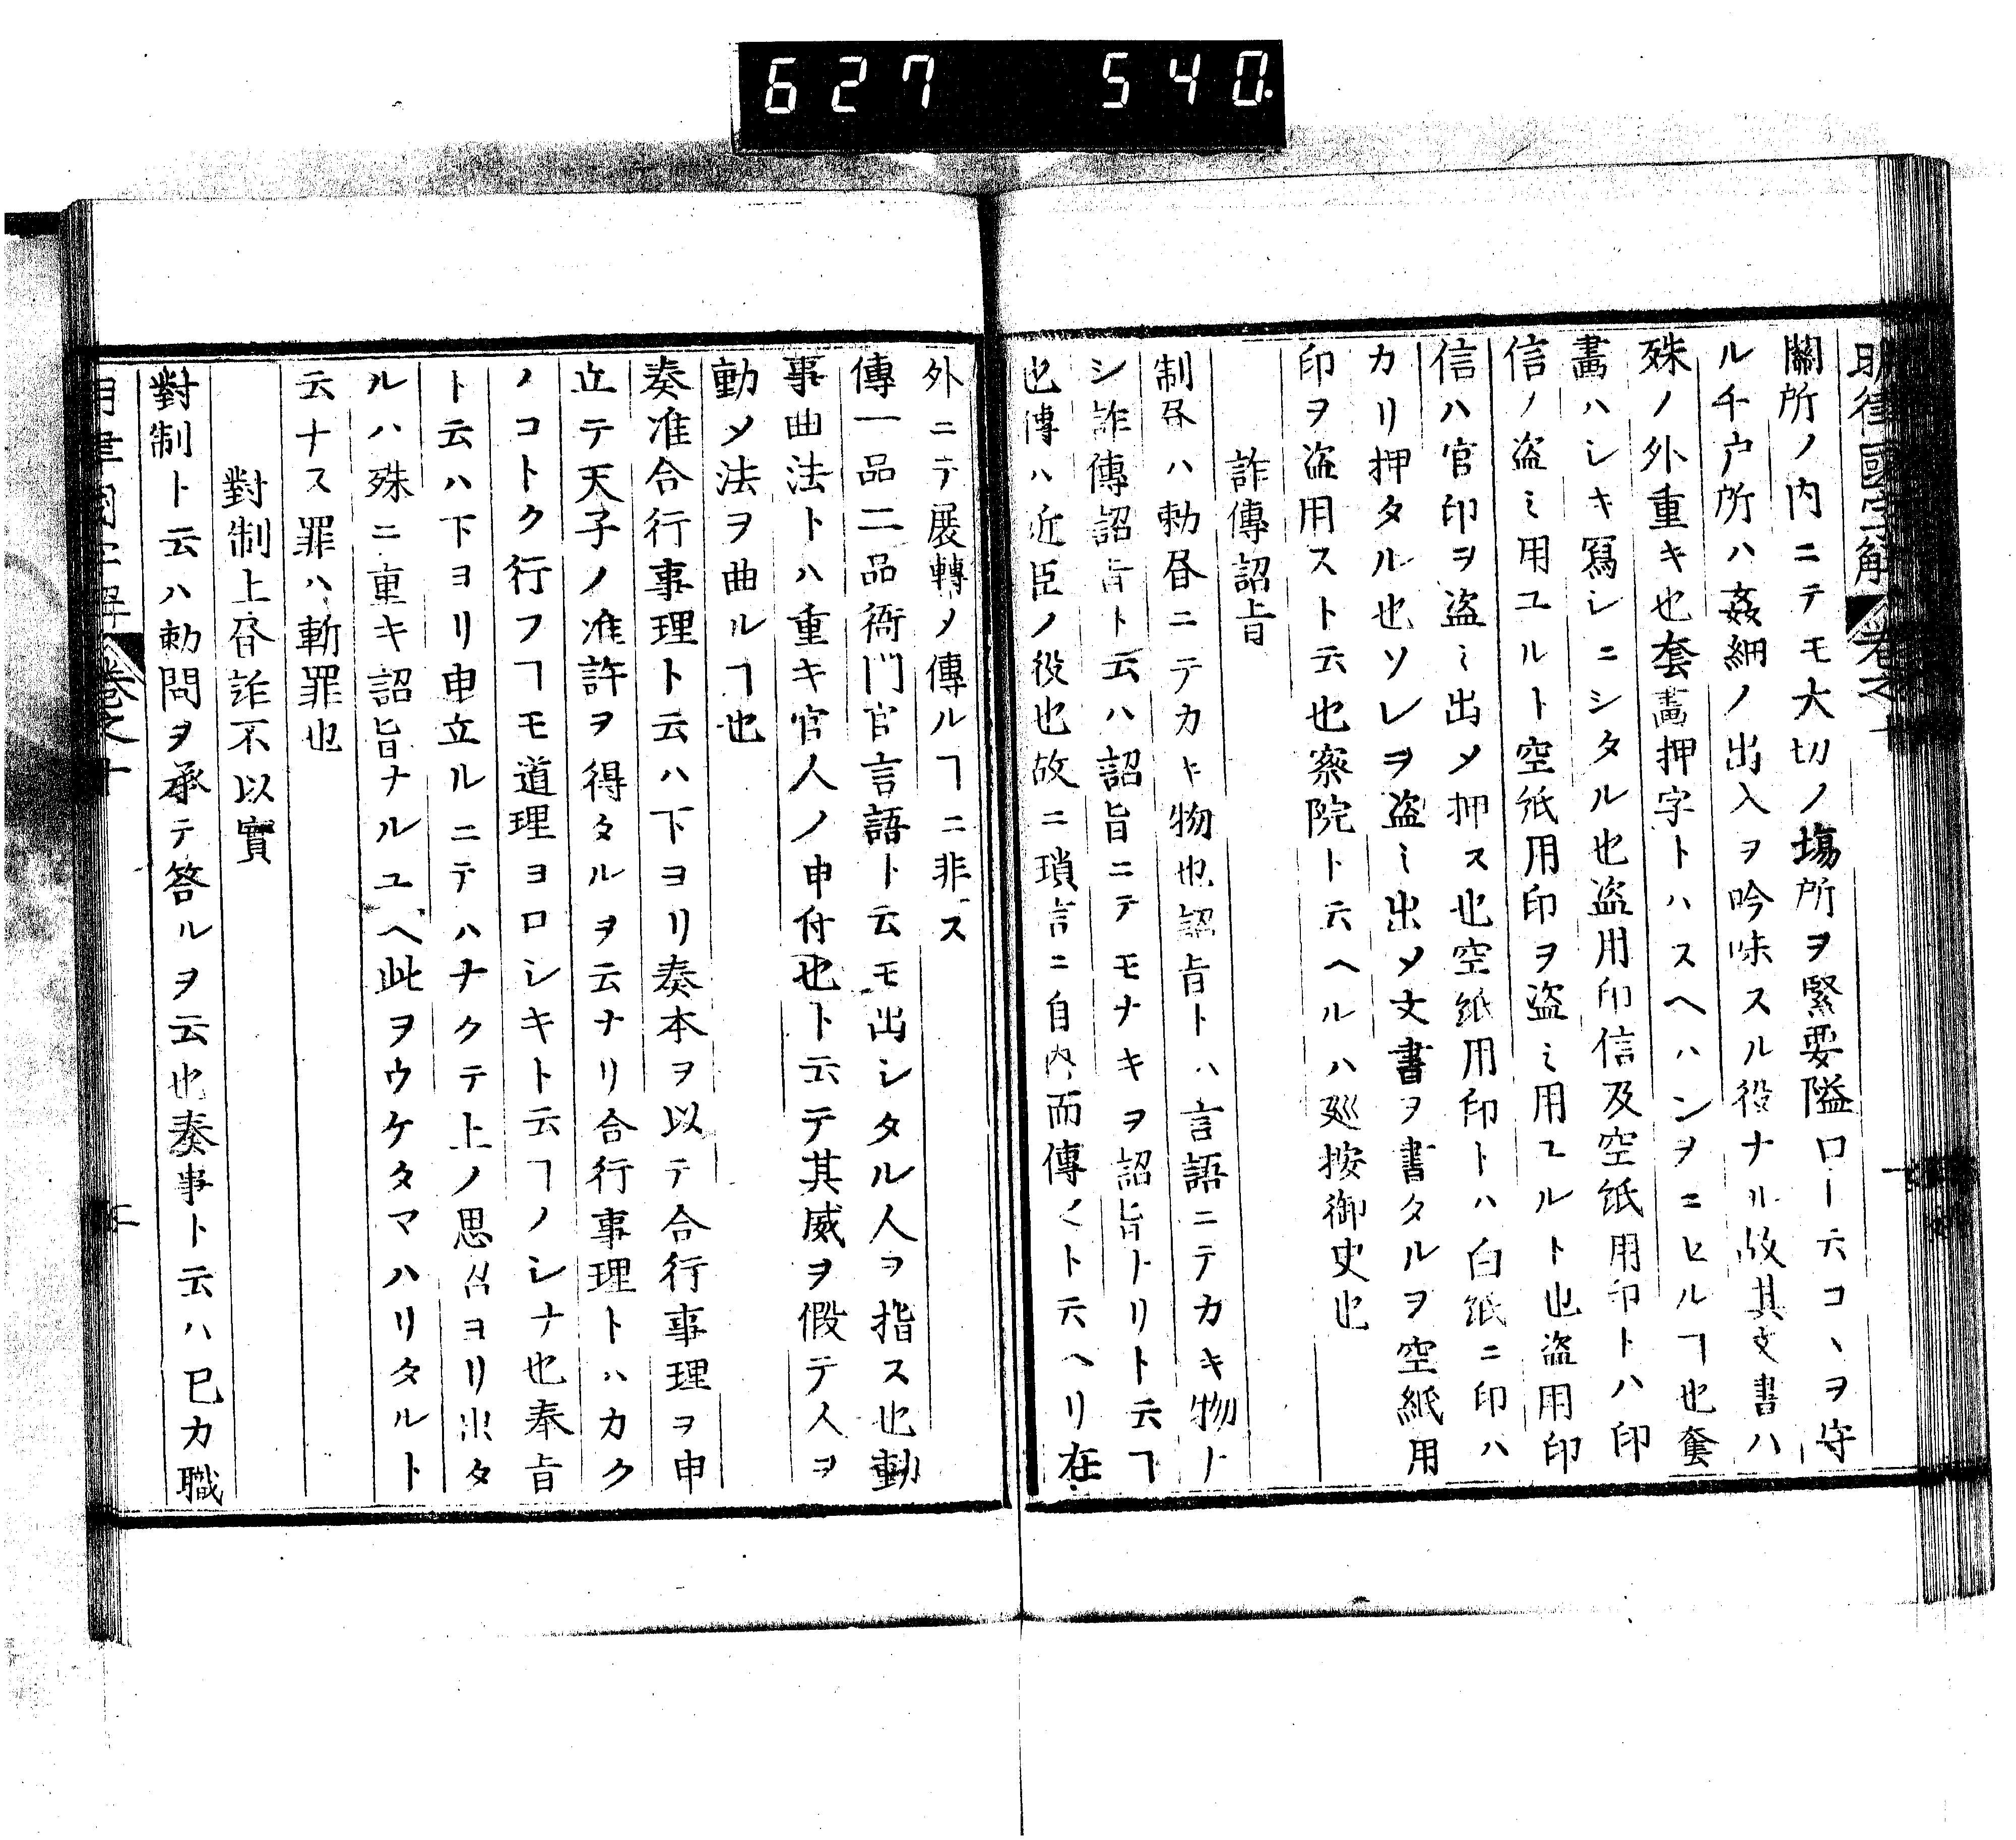 627 540
明律國字解 卷之十
關所ノ内ニテモ大切ノ場所ヲ緊要隘口ト云コヽヲ守
ル千戸所ハ姦細ノ出入ヲ吟味スル役ナル故其文書ハ
殊ノ外重キ也套畫押字トハスヘハンヲニセルヿ也套
畫ハシキ寫シニシタル也盗用印信及空紙用印トハ印
信ノ盗ミ用ユルト空紙用印ヲ盗ミ用ユルト也盗用印
信ハ官印ヲ盗ミ出メ押ス也空紙用印トハ白紙ニ印ハ
カリ押タル也ソレヲ盗ミ出メ文書ヲ書タルヲ空紙用
印ヲ盗用スト云也察院ト云ヘルハ廵按御史也
詐傳詔旨
制書ハ勅書ニテカキ物也詔旨トハ言語ニテカキ物ト
シ詐傳詔旨ト云ハ詔旨ニテモナキヲ詔旨トリト云ヿ
也傳ハ近臣ノ役也故ニ瑣言ニ自内而傳クト云ヘリ在
外ニテ展轉メ傳ルヿニ非ス
傳一品二品衙門官言語ト云モ出シタル人ヲ指ス也動
事曲法トハ重キ官人ノ申付也ト云テ其威ヲ假テ人ヲ
動メ法ヲ曲ルヿ也
奏准合行事理ト云ハ下ヨリ奏本ヲ以テ合行事理ヲ申
立テ天子ノ准許ヲ得タルヲ云ナリ合行事理トハカク
ノコトク行フヿモ道理ヨロシキト云ヿノシナ也奉旨
ト云ハ下ヨリ申立ルニテハナクテ上ノ思召ヨリ出タ
ルハ殊ニ重キ詔旨ナルユヘ此ヲウケタマハリタルト
云ナス罪ハ斬罪也
對制上書詐不以實
對制ト云ハ勅問ヲ承テ答ルヲ云也奏事ト云ハ已カ職
明律國字解 卷之十 二